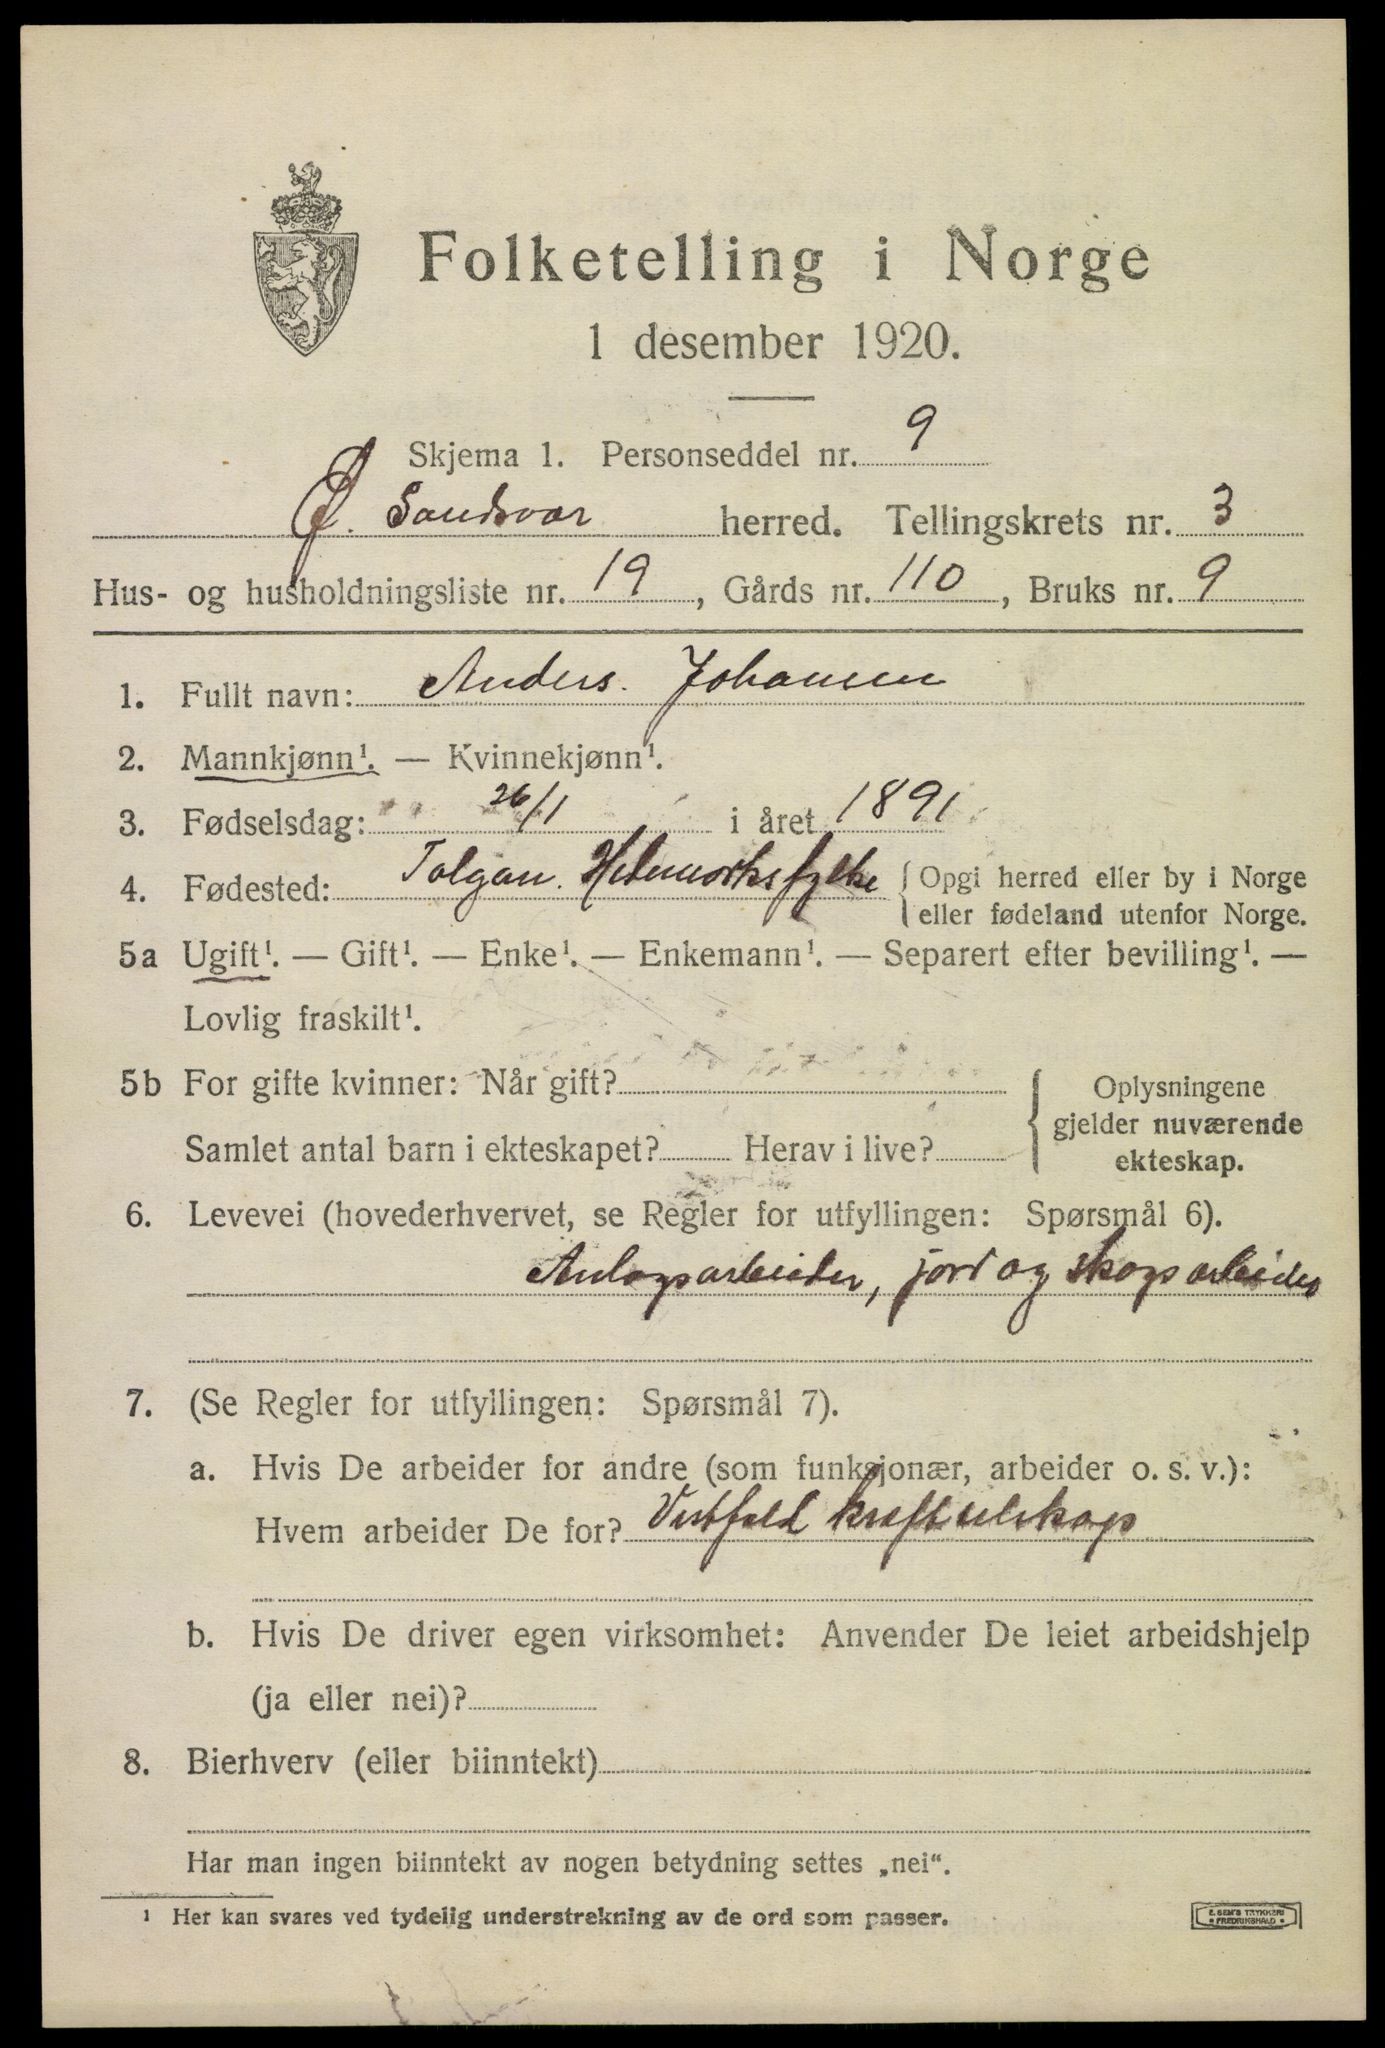 Folketelling i Norge
1 desember 1920.
Skjema 1. Personseddel nr. 9
Ø. Sandsvær herred. Tellingskrets nr. 3
Hus- og husholdningsliste nr. 19, Gårds nr. 110, Bruks nr. 9
1. Fullt navn: Anders Johansen
2. Mannkjønn¹. — Kvinnekjønn¹.
3. Fødselsdag: 26/1 i året 1891
4. Fødested: Tolgan. Hedmarksfylke { Opgi herred eller by i Norge
eller fødeland utenfor Norge.
5a Ugift¹. — Gift¹. — Enke¹. — Enkemann¹. — Separert efter bevilling¹. —
Lovlig fraskilt¹.
5b For gifte kvinner: Når gift?
Samlet antal barn i ekteskapet? Herav i live?
Oplysningene
gjelder nuværende
ekteskap.
6. Levevei (hovederhvervet, se Regler for utfyllingen: Spørsmål 6).
Anlægsarbeider, jord og skogsarbeider
7. (Se Regler for utfyllingen: Spørsmål 7).
a. Hvis De arbeider for andre (som funksjonær, arbeider o. s. v.):
Hvem arbeider De for? Vestfold kraftselskap
b. Hvis De driver egen virksomhet: Anvender De leiet arbeidshjelp
(ja eller nei)?
8. Bierhverv (eller biinntekt)
Har man ingen biinntekt av nogen betydning settes „nei“.
¹ Her kan svares ved tydelig understrekning av de ord som passer.
E. SEM'S TRYKKERI
FREDRIKSHALD